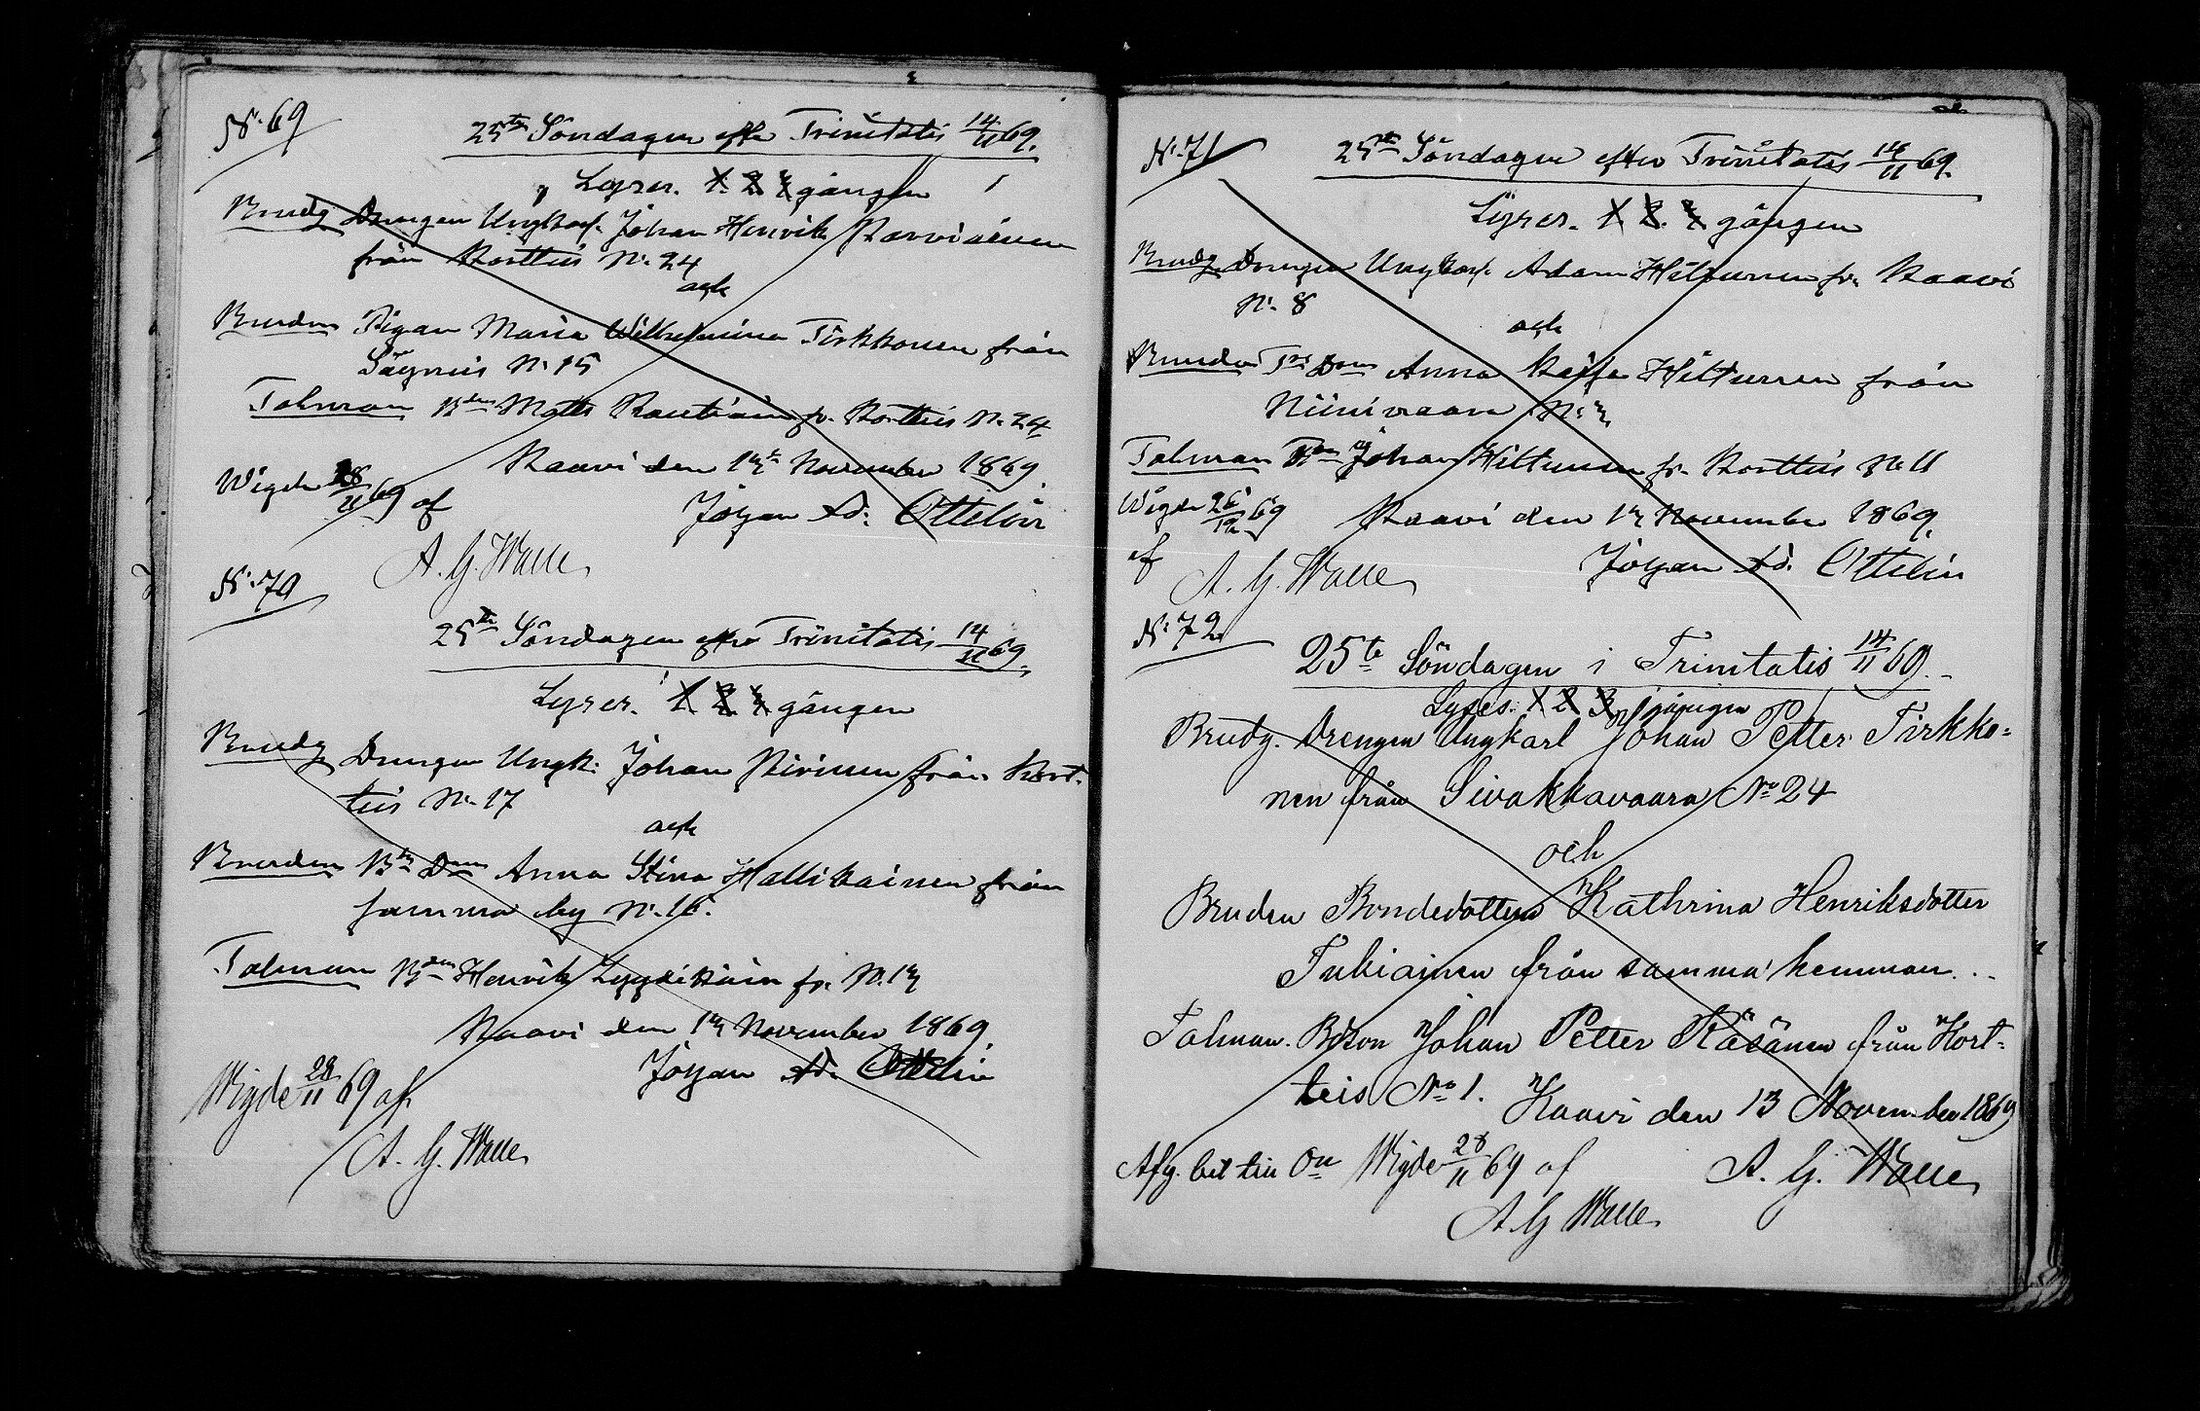 N:69
25te Söndagen efter Trinitatis 14/11 69.
Lyses. 1. 2. 3 gången
Brudg Drengen Ungkarl. Johan Henrik Karviainen
från Kortteis N: 24
och
Bruden Pigan Maria Wilhelmina Tirkkonen från
Säyneis N: 15
Talman Bden Matts Rautiain fr. Kortteis N: 24
Kaavi den 13de November 1869.
Wigde 28/11 69 af
Johan Ad: Ottelin
A. G. Walle
N:70
25te Söndagen efter Trinitatis 14/11 69.
Lyses. 1. 2. 3 gången
Brudg Drengen Ungk: Johan Pirinen från Kort-
teis N: 17
och
Bruden Bde Don Anna Stina Hallikainen från
samma by N: 16.
Talman Bden Henrik Lyydikäin fr. N: 13
Kaavi den 13 November 1869
Johan Ad. Ottelin
Wigde 28/11 69 af
A. G. Walle
N:71
25te Söndagen efter Trinitatis 14/11 69.
Lyses. 1 2. 3 gången
Brudg Drengen Ungkarl. Adam Hiltunen fr. Kaavi
N: 8
och
Bruden Don Anna Kajsa Hiltunen från
Niinivaara N: 3
Talman Johan Hiltunen fr. Kortteis N: 11
Wigde 26/12 69
Kaavi den 13 November 1869.
af
A. G. Walle
Johan Ad. Ottelin
N:72
25te Söndagen i Trinitatis 14/11 69.
Lyses. 1 2 3 gången
Brudg. Drengen Ungkarl Johan Petter Tirkko=
nen från Sivakkavaara No 24
och
Bruden Bondedottern Kathrina Henriksdotter
Tukiainen från samma hemman.
Talman. Bdson Johan Petter Räsänen från Kort=
teis No 1.
Kaavi den 13 November 1869
Afg. bet till Wigde 28/11 69 af
A. G. Walle
A G Walle